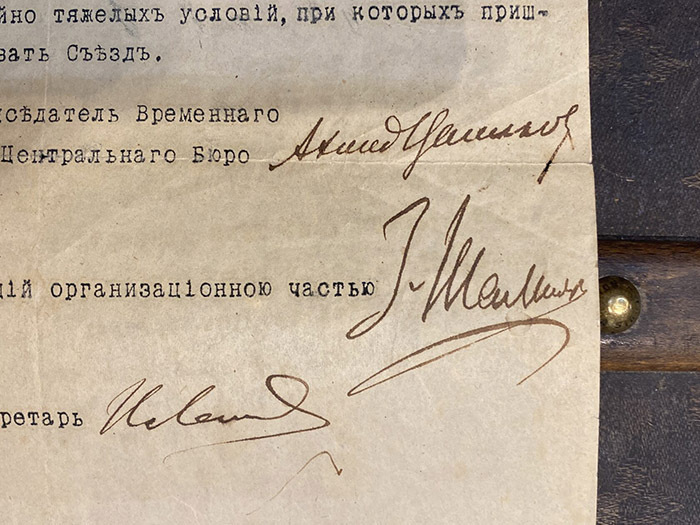 йно тяжелыхъ условій, при которыхъ приш-
вать Съѣздъ.
сѣдатель Временнаго
Центральнаго Бюро Ахмед Цаликов
цій организаціонною частью З. Шамиль
ретарь